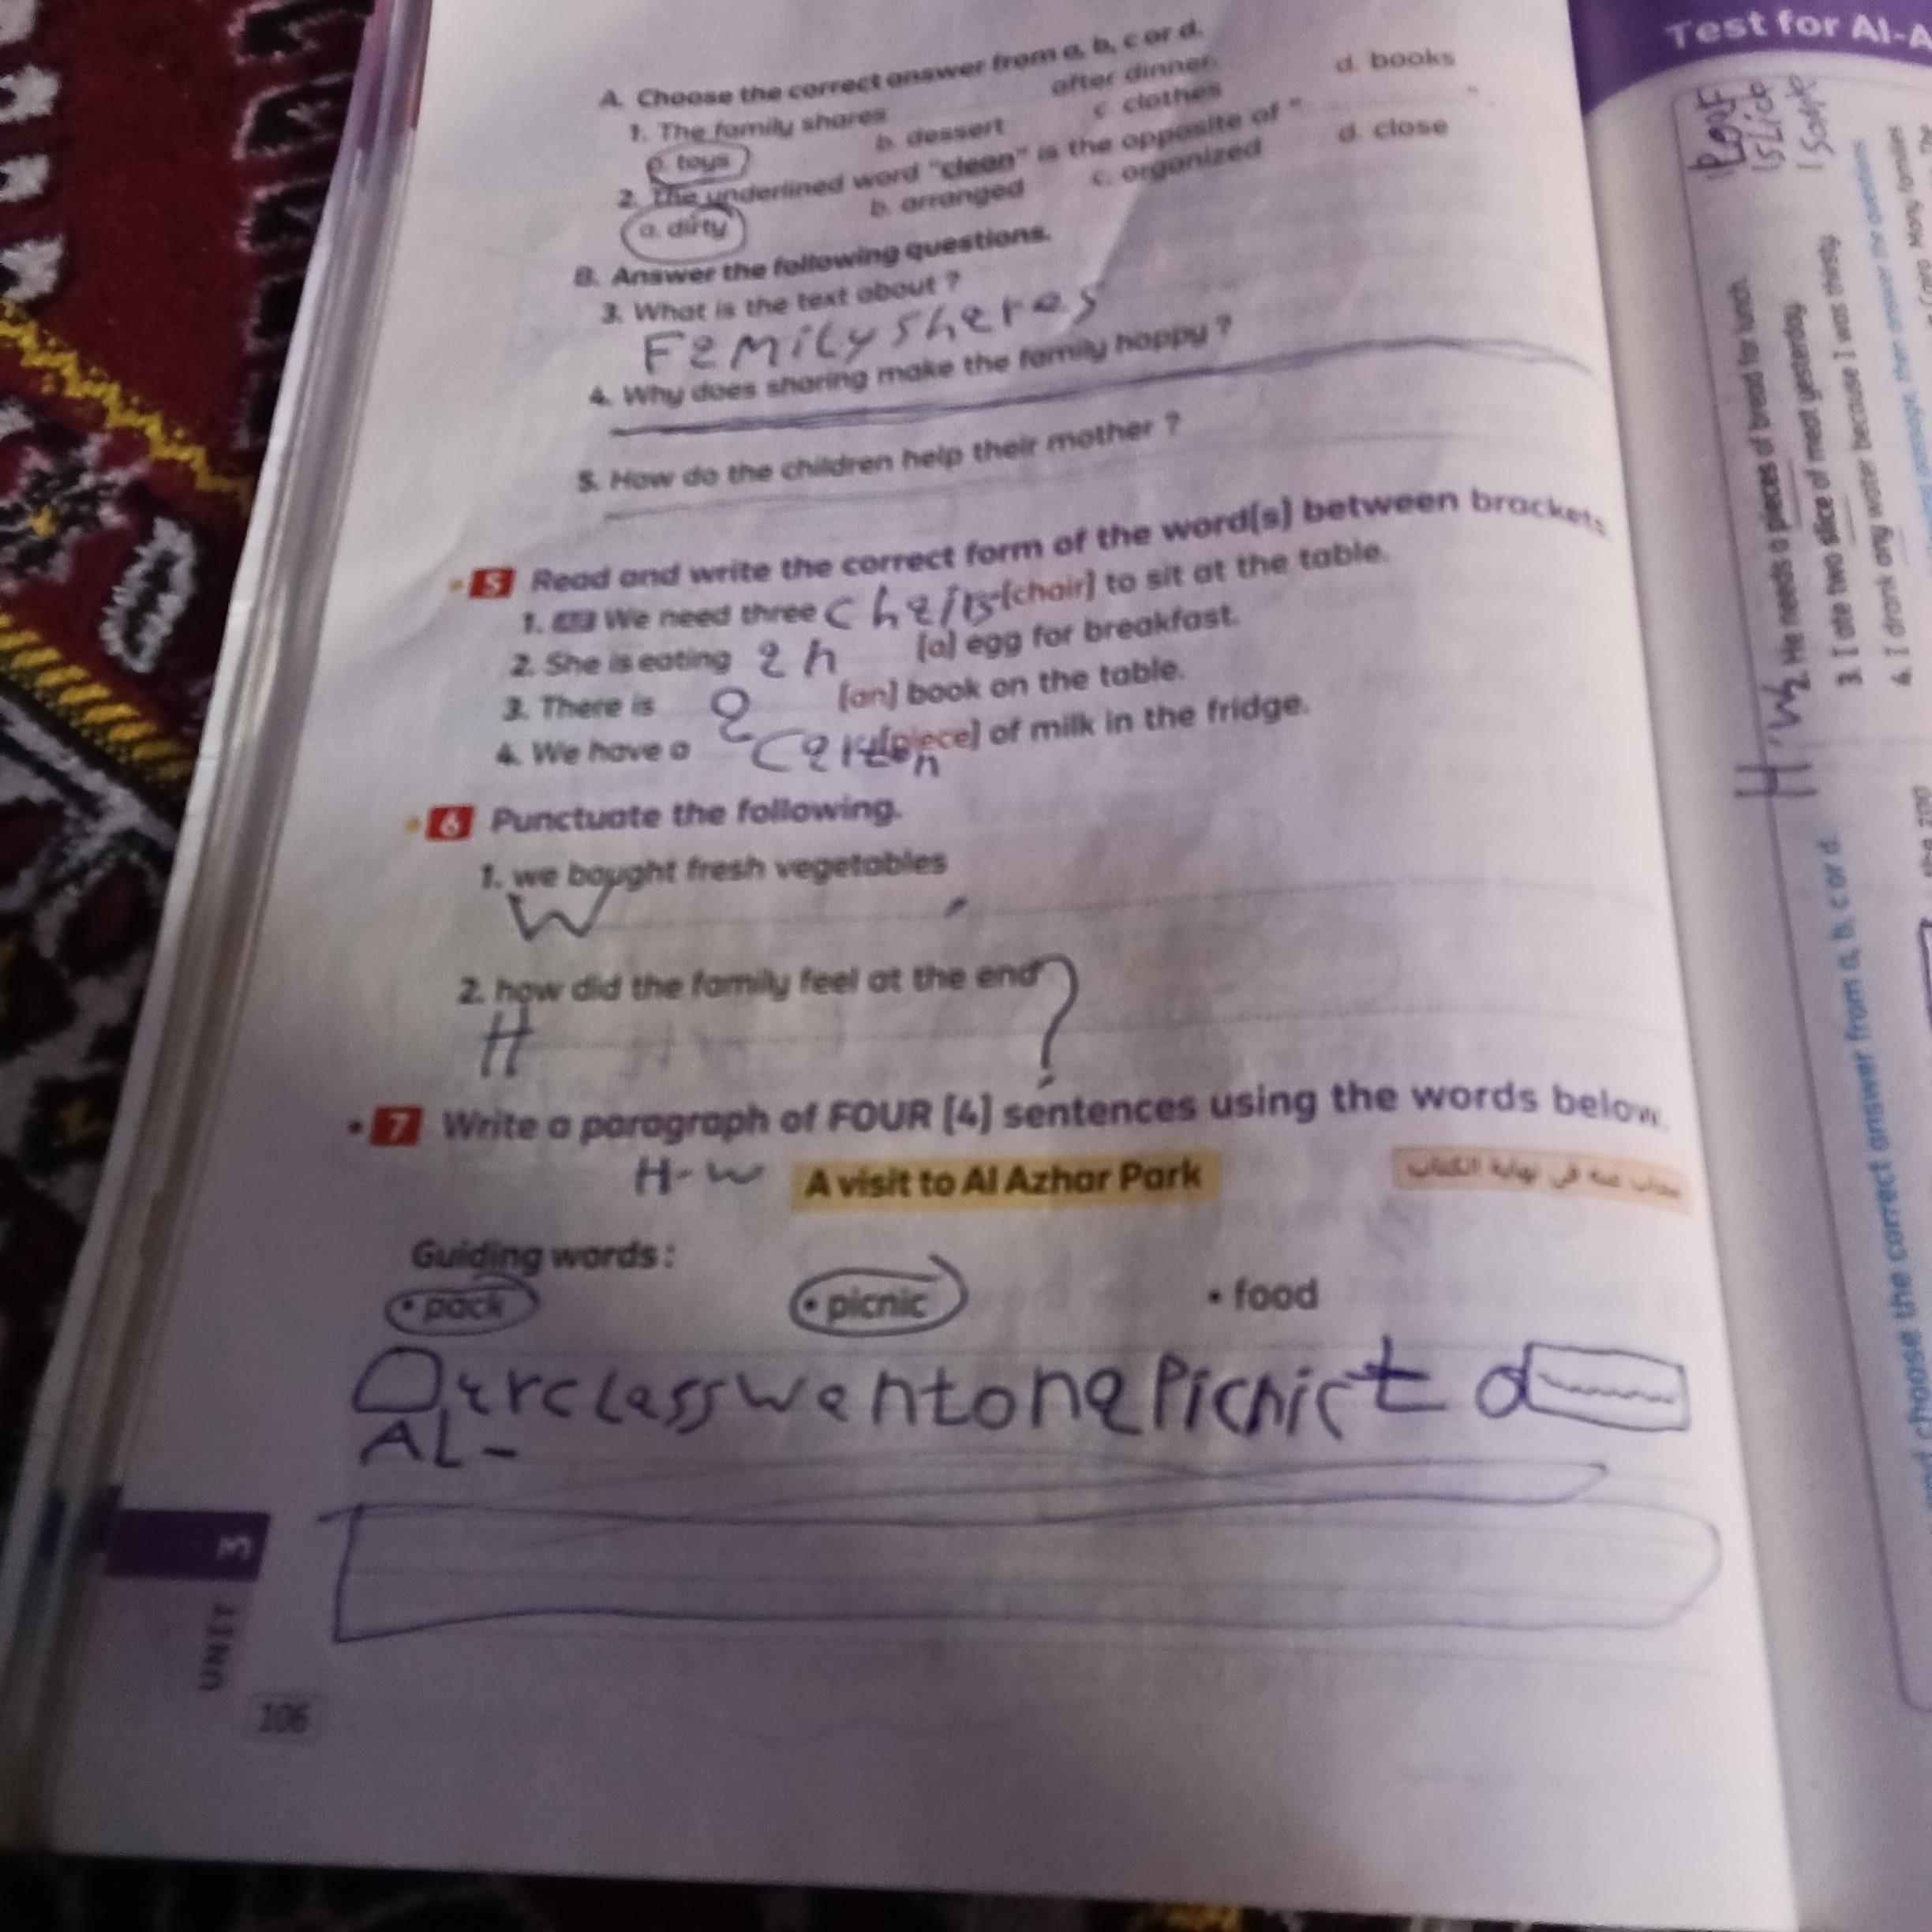 A. Choose the correct answer from a, b, c or d.
1. The family shares after dinner.
a. toys b. dessert c. clothes d. books
2. The underlined word "clean" is the opposite of " ".
a. dirty b. arranged c. organized d. close
B. Answer the following questions.
3. What is the text about ?
Family shares
4. Why does sharing make the family happy ?
5. How do the children help their mother ?
5 Read and write the correct form of the word(s) between brackets.
1. We need three chairs [chair] to sit at the table.
2. She is eating an [a] egg for breakfast.
3. There is a [an] book on the table.
4. We have a carton [piece] of milk in the fridge.
6 Punctuate the following.
1. we bought fresh vegetables
W .
2. how did the family feel at the end
H ?
7 Write a paragraph of FOUR [4] sentences using the words below.
H.w A visit to Al Azhar Park مجاب عنه في نهاية الكتاب
Guiding words :
• pack • picnic • food
Our class went on a Picnic to
AL-
UNIT 3
106
Test for Al-A
H.w
2. He needs a pieces of bread for lunch.
3. I ate two slice of meat yesterday.
4. I drank any water because I was thirsty.
choose the correct answer from a, b, c or d.
Many families